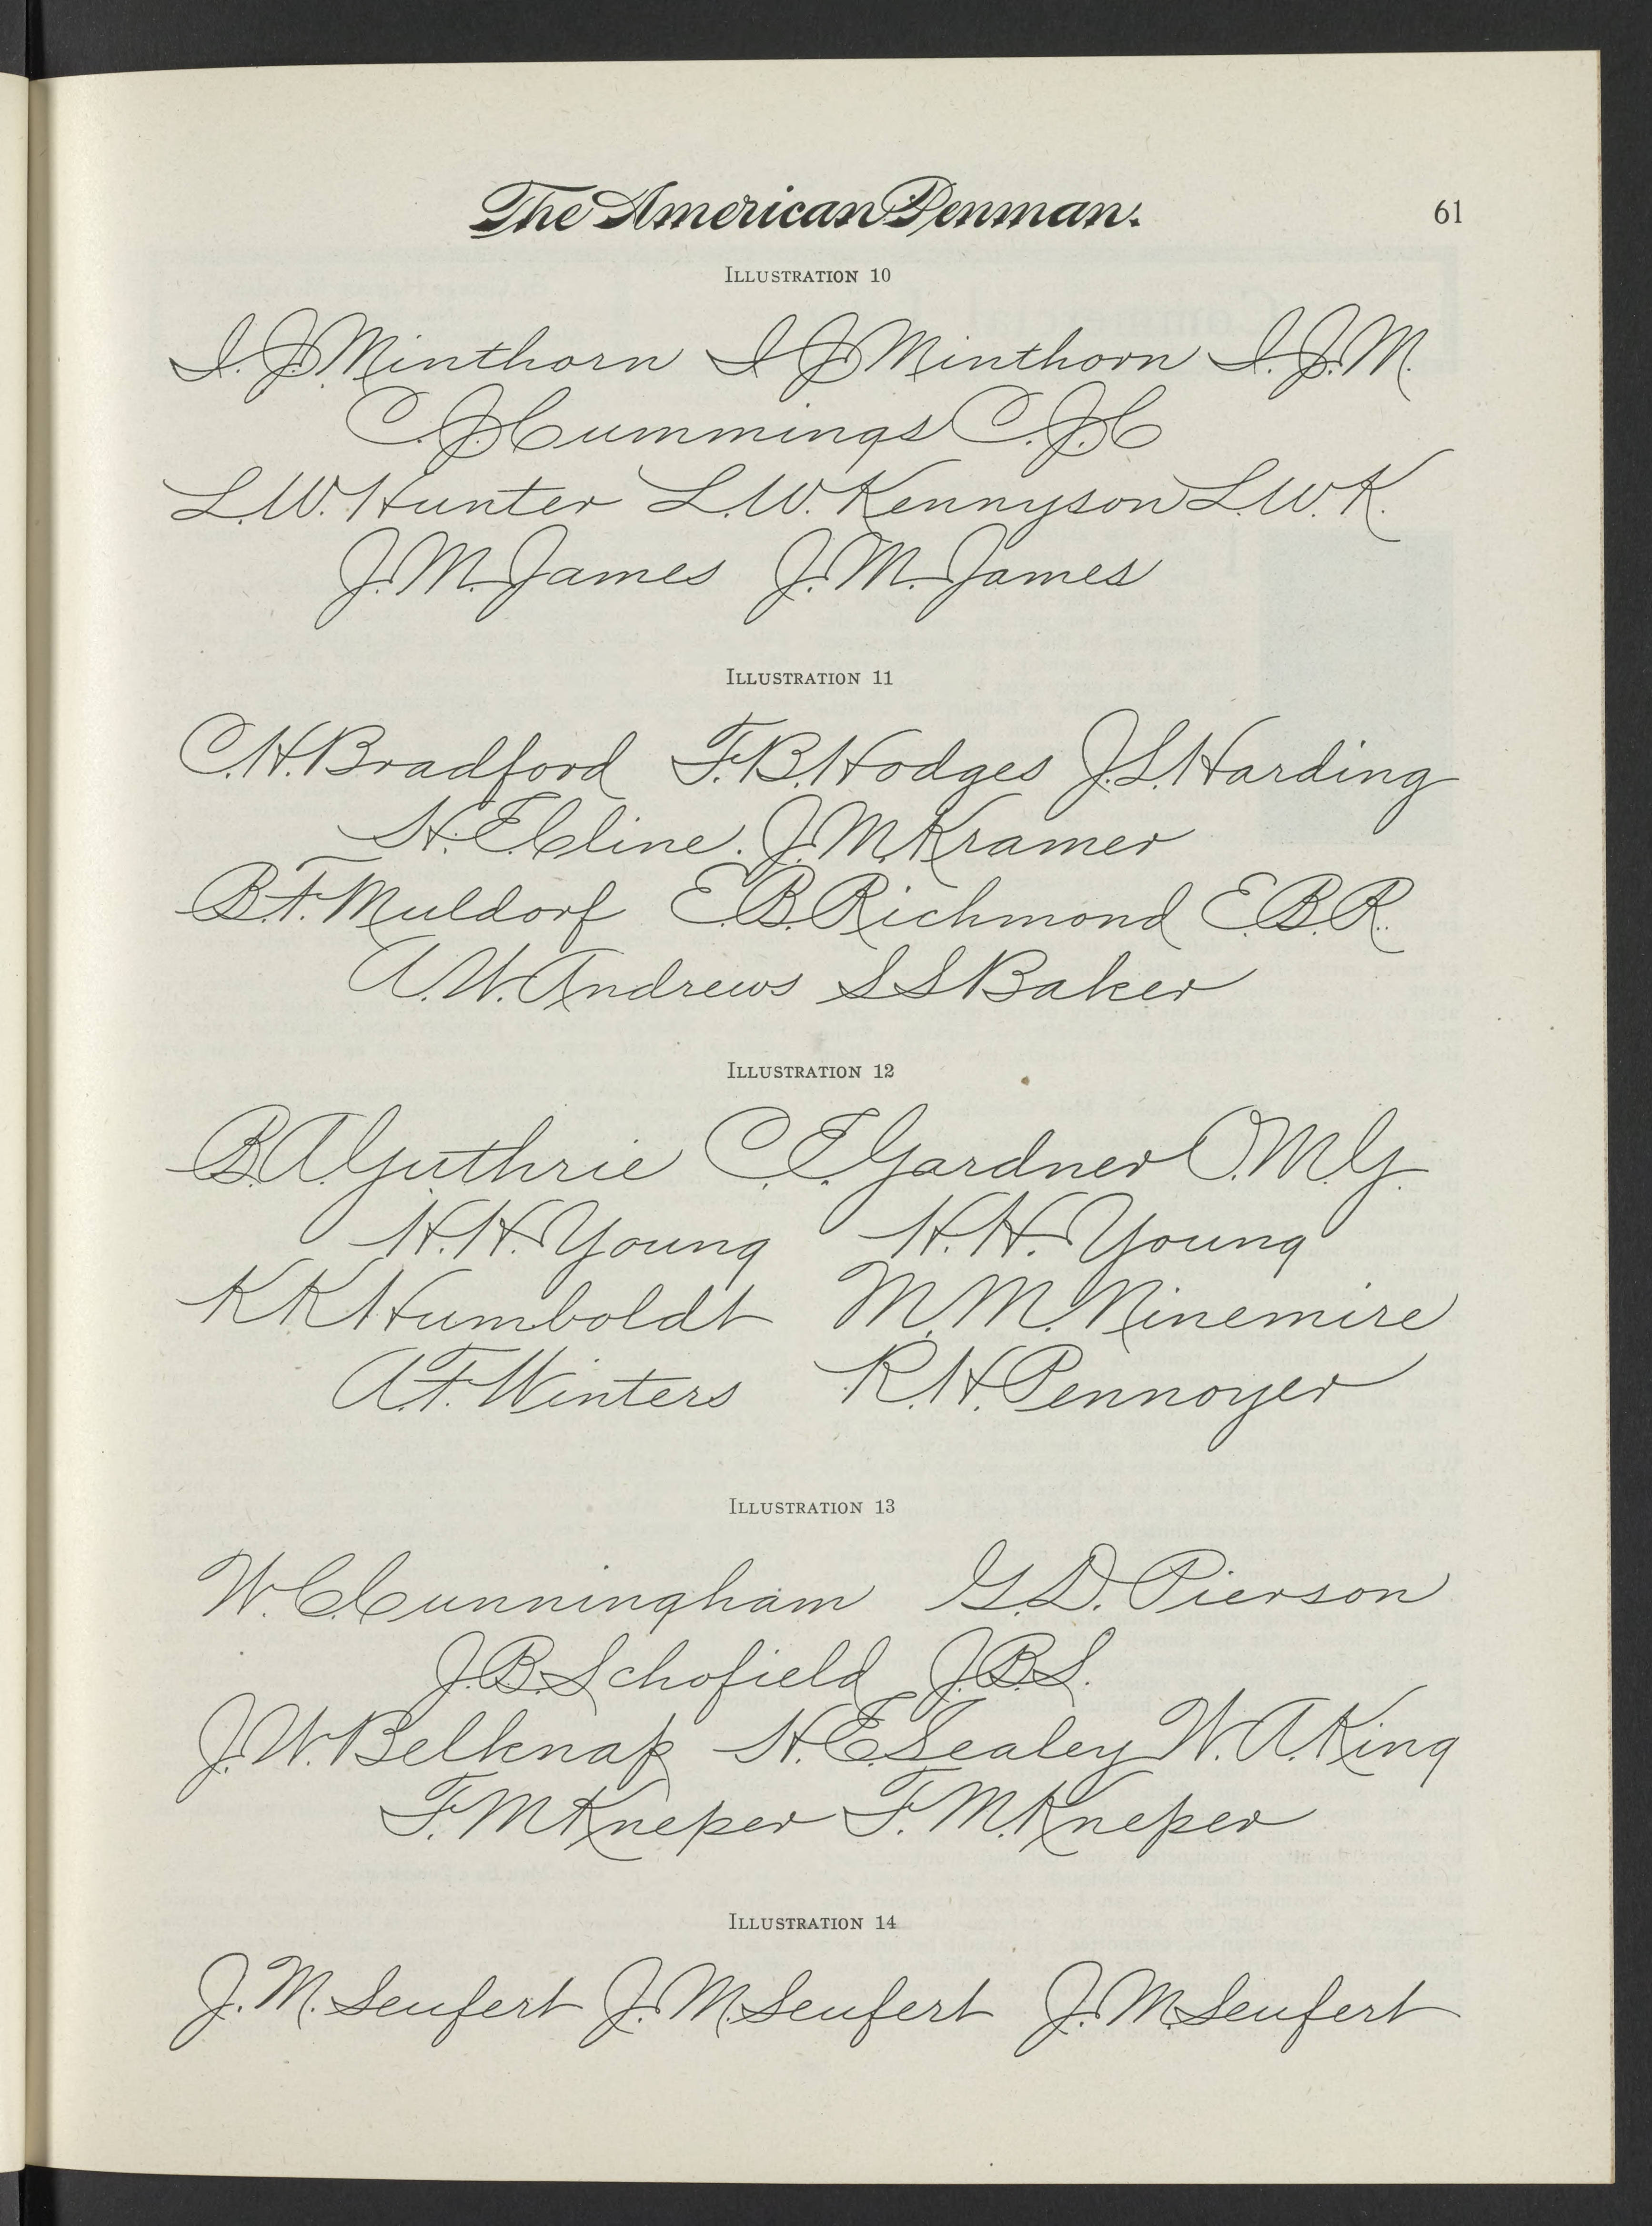 The American Penman.
61
ILLUSTRATION 10
I. J. Minthorn I J Minthorn I. J. M.
C. J. Cummings C. J. C
L. W. Hunter L. W. Kennyson L. W. K.
J. M. James J. M. James
ILLUSTRATION 11
C. H. Bradford F. B. Hodges J. S. Harding
H. E. Cline. J. M. Kramer
B. F. Muldorf E. B. Richmond E. B. R.
A. W. Andrews S S Baker
ILLUSTRATION 12
B. A. Guthrie C. E. Gardner O. M. G.
H. H. Young H. H. Young
K K Humboldt M. M. Ninemire
A. F. Winters R. H. Pennoyer
ILLUSTRATION 13
W. C. Cunningham G. D. Pierson
J. B. Schofield J. B. S.
J. W. Belknap H. E. Sealey W. A. King
F. M Kneper F. M. Kneper
ILLUSTRATION 14
J. M. Seufert J. M. Seufert J. M. Seufert